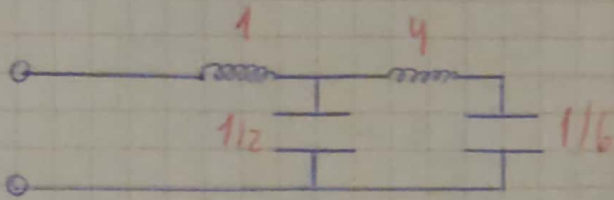 1 4
1/2 1/6